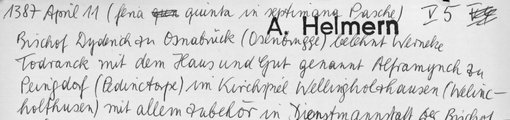 1387 April 11 (feria quinta in septimana Pasche) V 5
A. Helmern
Bischof Dyderich zu Osnabrück (Osenbrugge) belehnt Werneke
Todranck mit dem Haus und Gut genannt Alframynch zu
Peingdorf (Pedinctorpe) im Kirchspiel Wellingholzhausen (Welinc-
holthusen) mit allem Zubehör in Dienstmannstatt des Bischof